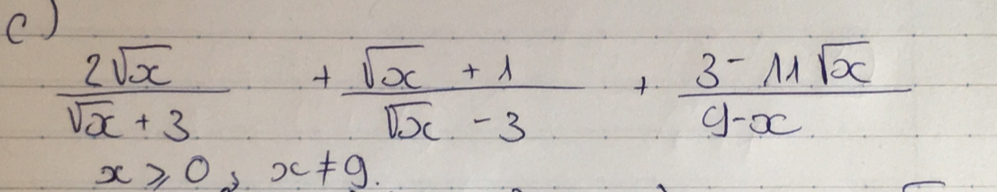 c)
2√x / √x + 3 + √x + 1 / √x - 3 + 3 - 11√x / 9-x
x ⩾ 0, x ≠ 9.